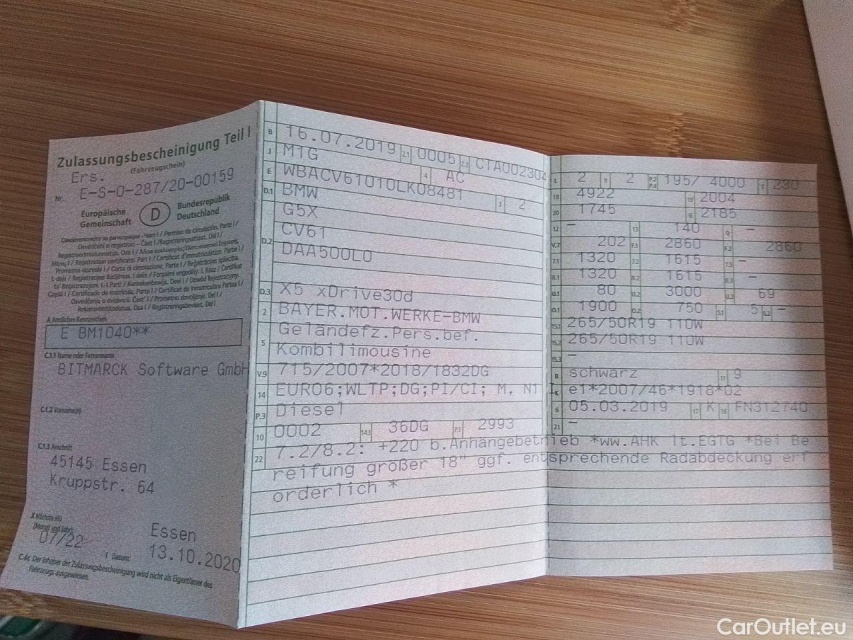 Zulassungsbescheinigung Teil I
(Fahrzeugschein)
Ers.
Nr. E-S-O-287/20-00159
Europäische Gemeinschaft D Bundesrepublik Deutschland
A Amtliches Kennzeichen
E BM1040**
C.1.1 Name oder Firmenname
BITMARCK Software GmbH
C.1.2 Vorname(n)
C.1.3 Anschrift
45145 Essen
Kruppstr. 64
X Nächste HU
07/22
Essen
I Datum: 13.10.2020
C.4c Der Inhaber der Zulassungsbescheinigung wird nicht als Eigentümer des
Fahrzeugs ausgewiesen.
B 16.07.2019 2.1 0005 2.2 CTA002304
J M1G 4 AC
E WBACV61010LK08481 3 2
D.1 BMW
G5X
D.2 CV61
DAA500L0
D.3 X5 xDrive30d
2 BAYER.MOT.WERKE-BMW
Geländefz.Pers.bef.
5 Kombilimousine
V.9 715/2007*2018/1832DG
14 EURO6;WLTP;DG;PI/CI; M, N1 I
P.3 Diesel
10 0002 14.1 36DG P.1 2993
22 7.2/8.2: +220 b.Anhängebetrieb *ww.AHK lt.EGTG *Bei Be
reifung größer 18" ggf. entsprechende Radabdeckung erf
orderlich *
L 2 9 2 P.2 P.4 195/ 4000 T 230
18 4922 19 2004
20 1745 G 2185
12 - 13 140 Q -
V.7 202 F.1 2860 F.2 2860
7.1 1320 7.2 1615 7.3 -
8.1 1320 8.2 1615 8.3 -
U.1 80 U.2 3000 U.3 69
O.1 1900 O.2 750 S.1 5 S.2 -
15.1 265/50R19 110W
15.2 265/50R19 110W
15.3 -
R schwarz 11 9
K e1*2007/46*1918*02
6 05.03.2019 17 K 16 FN312740
21 -
CarOutlet.eu